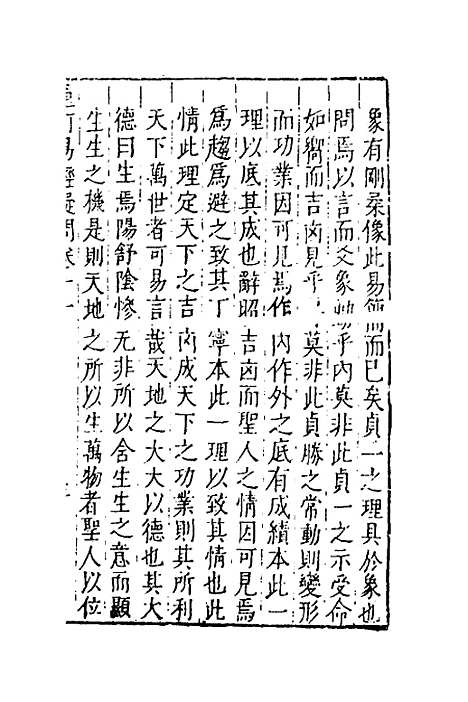 象有剛柔像此易簡而已矣貞一之理具於象也
問焉以言而爻象動乎內莫非此貞一之示受命
如嚮而吉凶見乎外莫非此貞勝之常動則變形
而功業因可見焉作內作外之底有成績本此一
理以底其成也辭昭吉凶而聖人之情因可見焉
為趨為避之致其丁寧本此一理以致其情也此
情此理定天下之吉凶成天下之功業則其所利
天下萬世者可易言哉天地之大大以德也其大
德曰生焉陽舒陰慘无非所以含生生之意而顯
生生之機是則天地之所以生萬物者聖人以位
易經疑問卷十一